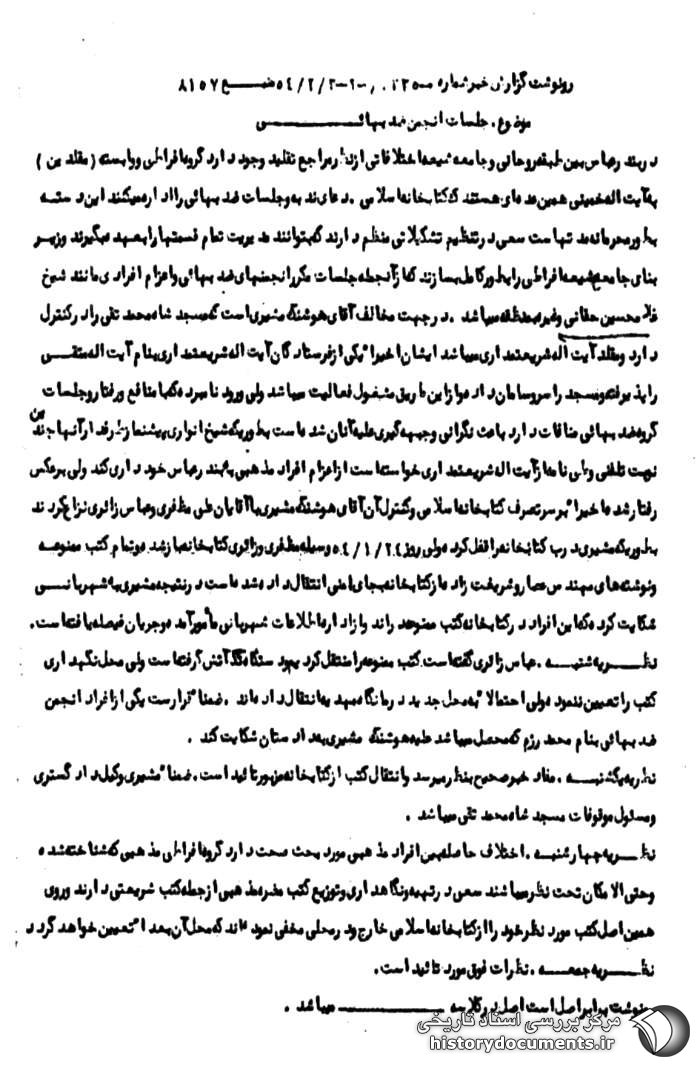 رونوشت گزارش خبر شماره ۵۴/۲/۳-۲۰ ۸۱۵۷
موضوع . جلسات انجمن ضد بهائی
در بندرعباس بین طبقه روحانی و جامعه شیعه اختلافاتی از نظر مراجع تقلید وجود دارد گروه افراطی و وابسته (مقلدین)
به آیت اله خمینی همین عده ای هستند که کتابخانه اسلامی . دعای ندبه و جلسات ضد بهائی را اداره میکنند این دسته
بطور محرمانه مدتهاست سعی در تنظیم تشکیلاتی منظم دارند که بتوانند مدیریت تمام قسمتها را بعهده میگیرند و زیر
بنای جامعه شیعه افراطی را بطور کامل بسازند که از آنجمله جلسات مکرر انجمنهای ضد بهائی و اعزام افرادی مانند شیخ
غلامحسین حقانی و غیره به منطقه میباشد . در جهت مخالف آقای هوشنگ مشیری است که مسجد شاه محمد تقی را در کنترل
دارد و مقلد آیت اله شریعتمداری میباشد ایشان اخیرا" یکی از فرستادگان آیت اله شریعتمداری بنام آیت اله متقی
را پذیرفته و مسجد را سر و سامان داده و از این طریق مشغول فعالیت میباشد ولی ورود نامبرده که با منافع و رفتار و جلسات
گروه ضد بهائی منافات دارد باعث نگرانی و جبهه گیری علیه آنان شده است بطوریکه شیخ انواری پیشنماز طرفدار آنها چندین
نوبت تلفنی و طی نامه از آیت اله شریعتمداری خواسته است از اعزام افراد مذهبی به بندرعباس خودداری کند ولی برعکس
رفتار شده اخیرا" بر سر تصرف کتابخانه اسلامی و کنترل آن آقای هوشنگ مشیری با آقایان علی مظفری و عباس زائری نزاع کردند
بطوریکه مشیری درب کتابخانه را قفل کرده ولی روز ۵۴/۱/۲۴ وسیله مظفری و زائری کتابخانه باز شده و تمام کتب ممنوعه
و نوشته های مهندس معمار و شریعت زاده از کتابخانه بجای امنی انتقال داده شده است در نتیجه مشیری به شهربانی
شکایت کرده که این افراد در کتابخانه کتب ممنوعه دارند و از اداره اطلاعات شهربانی مأمور آمده و جریان فیصله یافته است .
نظریه شنبه . عباس زائری گفته است کتب ممنوعه را منتقل کرده بود ولی محل نگهداری
کتب را تعیین ننموده ولی احتمالا" به محل جدید درمانگاه مهدیه انتقال داده اند . ضمنا" قرار است یکی از افراد انجمن
ضد بهائی بنام محمد رزم که محصل میباشد علیه هوشنگ مشیری به دادستان شکایت کند .
نظریه یکشنبه . مفاد خبر صحیح بنظر میرسد و انتقال کتب از کتابخانه مزبور تائید است . ضمنا" مشیری وکیل دادگستری
و مسئول موقوفات مسجد شاه محمد تقی میباشد .
نظریه چهارشنبه . اختلاف حاصله بین افراد مذهبی مورد بحث صحت دارد گروه افراطی مذهبی که شناخته شده
و حتی الامکان تحت نظر میباشند سعی در تهیه و نگاهداری و توزیع کتب مضره مذهبی از جمله کتب شریعتی دارند و روی
همین اصل کتب مورد نظر خود را از کتابخانه اسلامی خارج و در محلی مخفی نموده اند که محل آن بعدا" تعیین خواهد گردید
نظریه جمعه . نظرات فوق مورد تائید است .
رونوشت برابر اصل است اصل در کلاسه میباشد .
مرکز بررسی اسناد تاریخی
historydocuments.ir